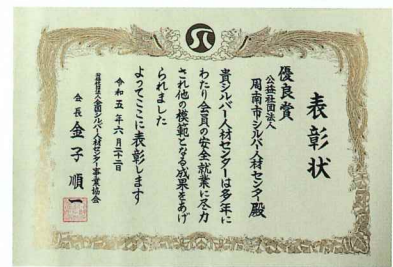 表彰状
優良賞
公益社団法人
周南市シルバー人材センター殿
貴シルバー人材センターは多年に
わたり会員の安全就業に尽力
され他の模範となる成果をあげ
られました
よってここに表彰します
令和五年六月二十二日
公益社団法人全国シルバー人材センター事業協会
会長 金子順一